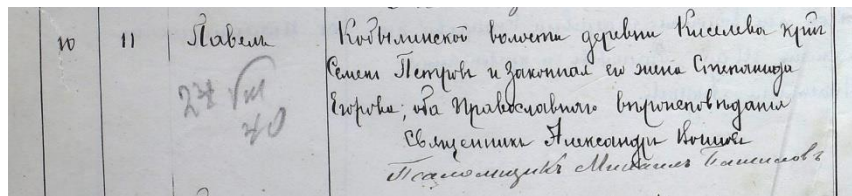 10 11 Павелъ Кобылинской волости деревни Киселева крт
Семенъ Петровъ и законная его жена Степанида
27 VIII 40
Егорова; оба Православнаго вероисповеданiя
Священникъ Александръ
Псаломщикъ Михаилъ